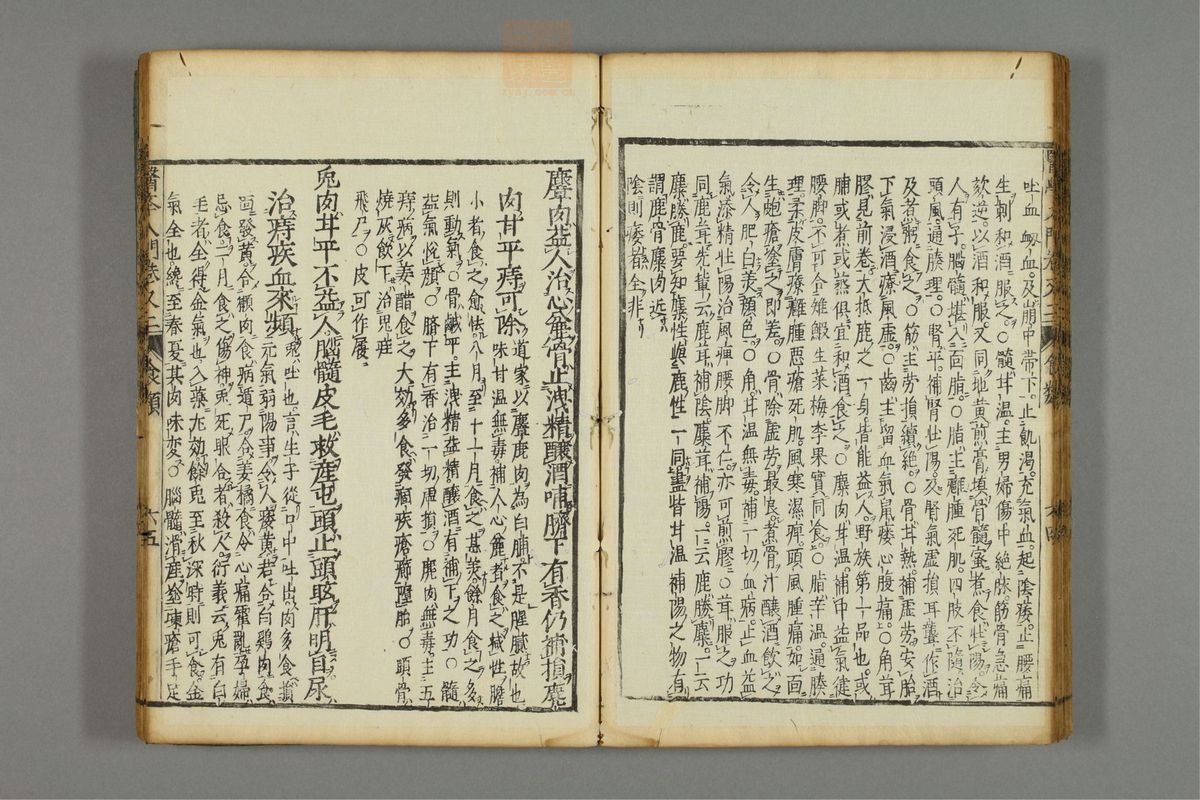 吐血衂血及崩中帶下止飢渴充氣血起陰痿止腰痛
生刺和酒服之髓甘溫主男婦傷中絶脉筋骨急痛
欬逆以酒和服又同地黃煎膏塡骨髓蜜煮食壯陽令
人有子腦髓堪入面脂○脂主癰腫死肌四肢不隨治
頭風通腠理○腎平補腎壯陽及腎氣虛損耳聾作酒
及煮粥食之○筋主勞損續絶○骨甘熱補虛勞安胎
下氣浸酒療風虛○齒主留血氣鼠瘻心腹痛○角茸
膠見前卷大抵鹿之一身皆能益人野族第一品也或
脯或煮或蒸俱宜和酒食之○麋肉甘溫補中益氣徤
腰脚不可合雉蝦生菜梅李果實同食○脂辛溫通腠
理柔皮膚療癰腫惡瘡死肌風寒濕痺頭風腫痛如面
生皰瘡塗之卽差○骨除虛劳最良煮骨汁釀酒飮之
令人肥白美顏色○角甘溫無毒補一切血病止血益
氣添精壯陽治風痺腰脚不仁亦可煎膠○茸服之功
同鹿茸先輩云鹿茸補陰麋茸補陽一云鹿勝麋一云
麋勝鹿要知麋性與鹿性一同盡皆甘溫補陽之物有
謂鹿骨麋肉近
陰則痿者全非
麞肉益人治心
肉甘平痔可除道家以麞鹿肉為白脯不是腥膩故也
味甘溫無毒補人心麄者食之
小者食之愈怯八月至十一月食之甚美餘月食之多
則動氣○骨鹹平主洩精益精釀酒有補下之功○髓
益氣悅顏○臍下有香治一切虛損○麂肉無毒主五
痔病以姜醋食之大効多食發痼疾瘡癤墮胎○頭骨
燒灰飮下治飛疰
飛尸○皮可作履
兎肉甘平不益人腦髓皮毛救產屯頭止頭眩肝明目尿
治痔疾血來頻兎吐也言生子從口中吐出肉多食損
元氣弱陽事令人痿黃若合白鷄肉食
發黃合獺肉食病遁尸合姜橘食令心痛霍亂孕婦
忌食二月食之傷神兎死眼合者殺人衍義云兎有白
毛者全得金氣也入藥尤効餘兎至秋深時則可食金
氣全也纔至春夏其肉味変○腦髓滑產塗凍瘡手足